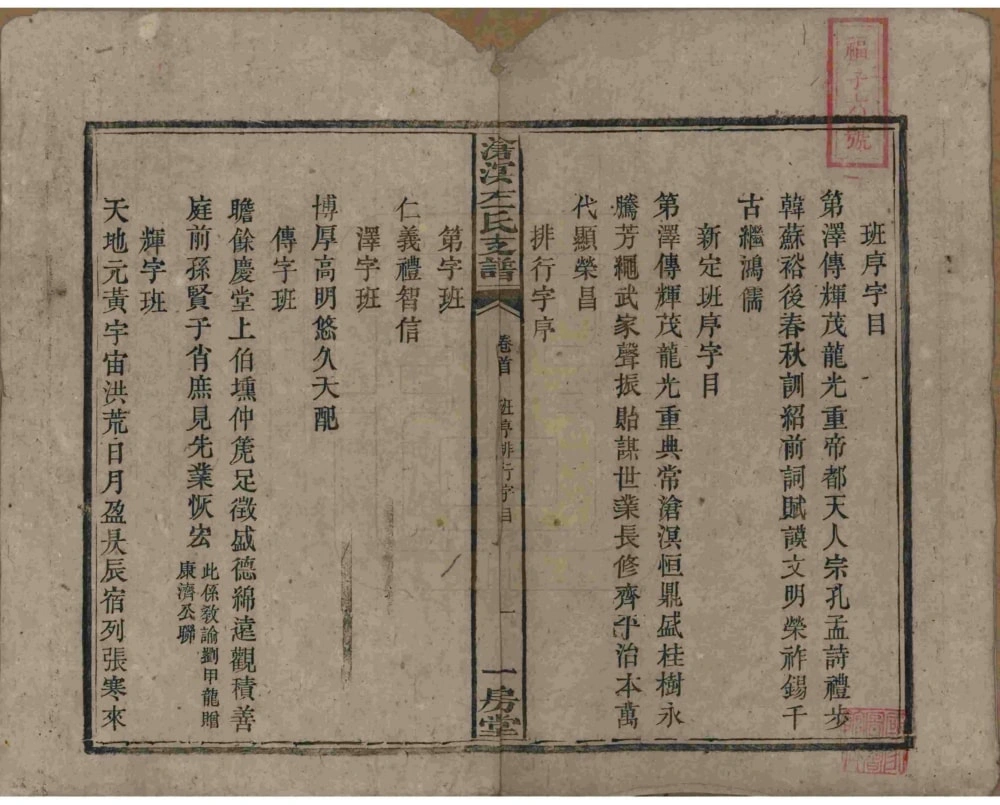 福字 號
班序字目
第澤傳輝茂龍光重帝都天人宗孔孟詩禮步
韓蘇裕後春秋訓紹前詞賦謨文明榮祚錫千
古繼鴻儒
新定班序字目
第澤傳輝茂龍光重典常滄溟恒鼎盛桂樹永
騰芳繩武家聲振貽謀世業長修齊平治本萬
代顯榮昌
排行字序
滄溟左氏支譜
卷首
班序排行字目
一
一房堂
第字班
仁義禮智信
澤字班
博厚高明悠久天配
傳字班
瞻餘慶堂上伯壎仲箎足徵盛德綿遠觀積善
庭前孫賢子肖庶見先業恢宏
此係教諭劉甲龍贈
康濟公聯
輝字班
天地元黃宇宙洪荒日月盈昃辰宿列張寒來